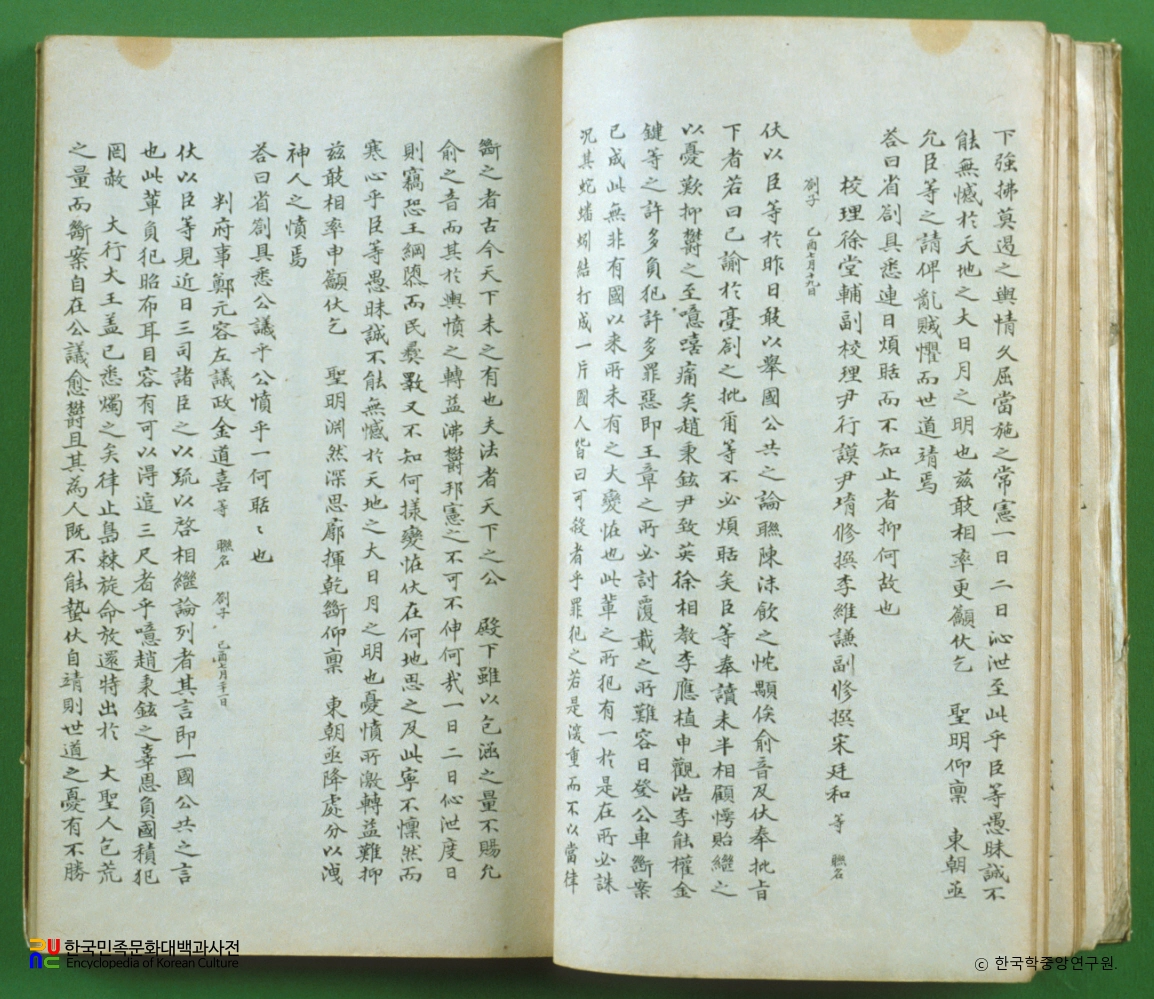 下強拂莫遏之輿情久屈當施之常憲一日二日沁泄至此乎臣等愚昧誠不
能無憾於天地之大日月之明也茲敢相率更籲伏乞 聖明仰稟 東朝亟
允臣等之請俾亂賊懼而世道靖焉
答曰省劄具悉連日煩聒而不知止者抑何故也
校理徐堂輔副校理尹行謨尹堉修撰李維謙副修撰宋廷和等 聯名
劄子 乙酉七月十九日
伏以臣等於昨日敢以舉國公共之論聯陳沫飲之忱顒俟俞音及伏奉批旨
下者若曰已諭於臺劄之批爾等不必煩聒矣臣等奉讀未半相顧愕貽繼之
以憂歎抑鬱之至噫嘻痛矣趙秉鉉尹致英徐相教李應植申觀浩李能權金
鍵等之許多負犯許多罪惡即王章之所必討覆載之所難容日登公車斷案
已成此無非有國以來所未有之大變恠也此輩之所犯有一於是在所必誅
况其蛇蟠蚓結打成一片國人皆曰可殺者乎罪犯之若是深重而不以當律
斷之者古今天下未之有也夫法者天下之公 殿下雖以包涵之量不賜允
俞之音而其於輿憤之轉益沸鬱邦憲之不可不伸何哉一日二日沁泄度日
則竊恐王綱隳而民彝斁又不知何樣變恠伏在何地思之及此寧不懍然而
寒心乎臣等愚昧誠不能無憾於天地之大日月之明也憂憤所激轉益難抑
茲敢相率申籲伏乞 聖明渊然深思廓揮乾斷仰稟 東朝亟降處分以洩
神人之憤焉
答曰省劄具悉公議乎公憤乎一何聒〻也
判府事鄭元容左議政金道喜等 聯名 劄子 己酉七月二十一日
伏以臣等見近日三司諸臣之以疏以啓相繼論列者其言即一國公共之言
也此輩負犯昭布耳目容有可以得逭三尺者乎噫趙秉鉉之辜恩負國積犯
罔赦 大行大王盖已悉燭之矣律止島棘旋命放還特出於 大聖人包荒
之量而斷案自在公議愈鬱且其為人既不能蟄伏自靖則世道之憂有不勝
한국민족문화대백과사전
Encyclopedia of Korean Culture
ⓒ 한국학중앙연구원.